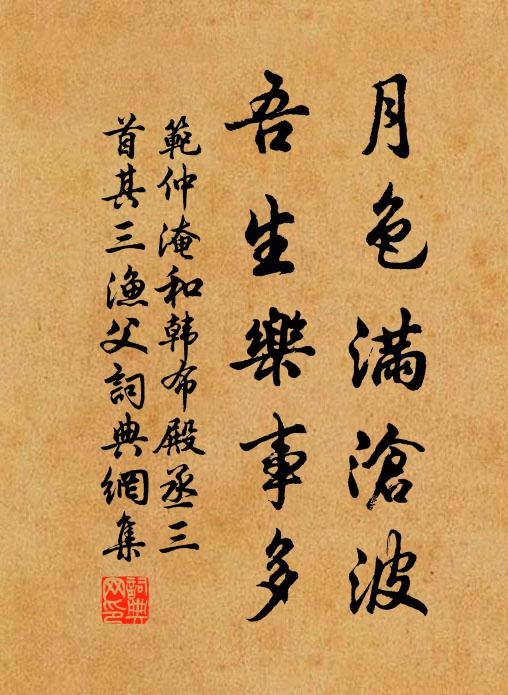 月色滿滄波
吾生樂事多
範仲淹和韩布殿丞三
首其三漁父詞典網集
詞典網印